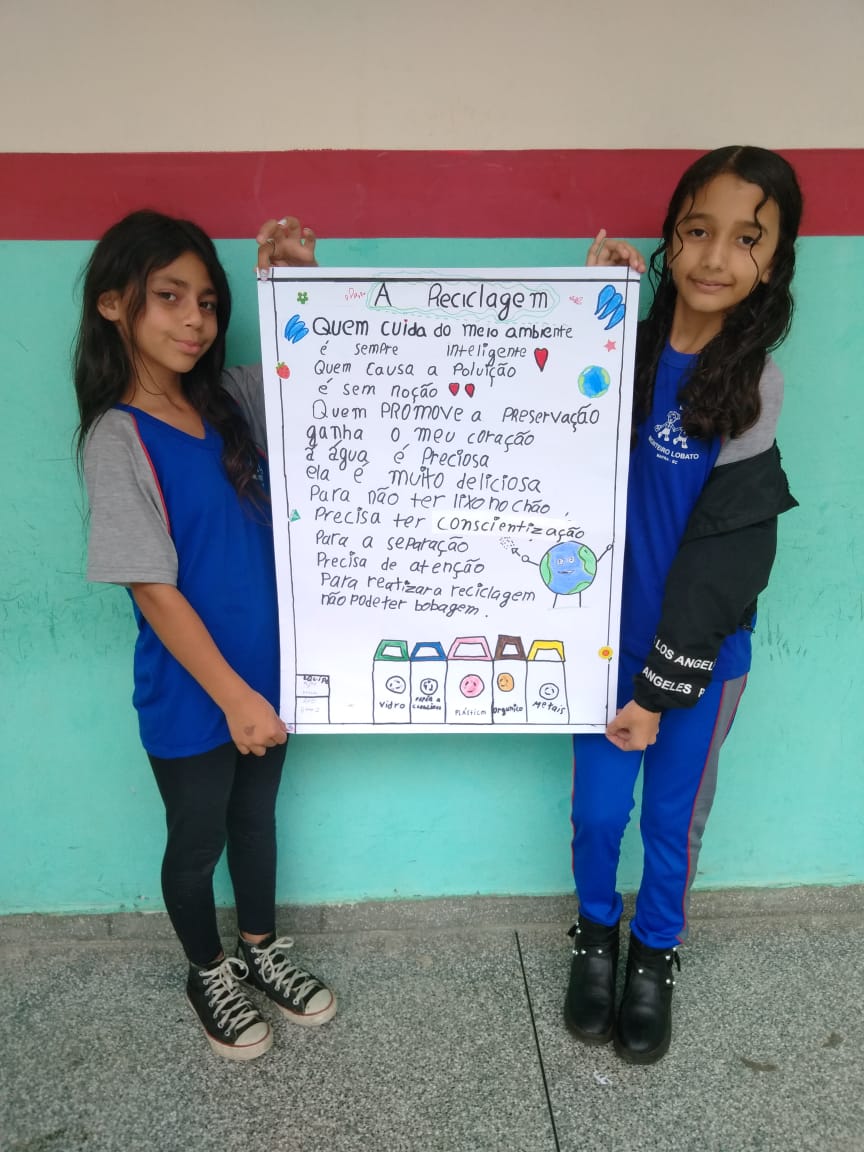 A Reciclagem
Quem cuida do meio ambiente
é sempre inteligente
Quem causa a Poluição
é sem noção
Quem PROMOVE a PRESERVAÇÃO
ganha o meu coração
a água é Preciosa
ela é muito deliciosa
Para não ter lixo no chão,
Precisa ter conscientização
Para a separação
Precisa de atenção
Para reatizar a reciclagem
não Pode ter bobagem.
EQUIPE
vidro
Plástico
metais
MONTEIRO LOBATO
LOS ANGEL
ANGELES P